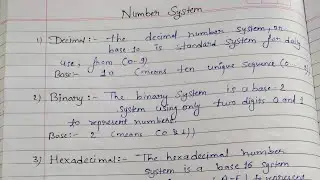 Number System
1) Decimal :- - the decimal number system, or
base 10 is standard system for daily
use, from (0-9)
Base:- 10 (means ten unique sequence (0-
2) Binary :- The binary system is a base-2
system using only two digits 0 and 1
to represent numbers
Base:- 2 (means (0 & 1))
3) Hexadecimal:- - The hexadecimal number
system is a base 16 system
represent